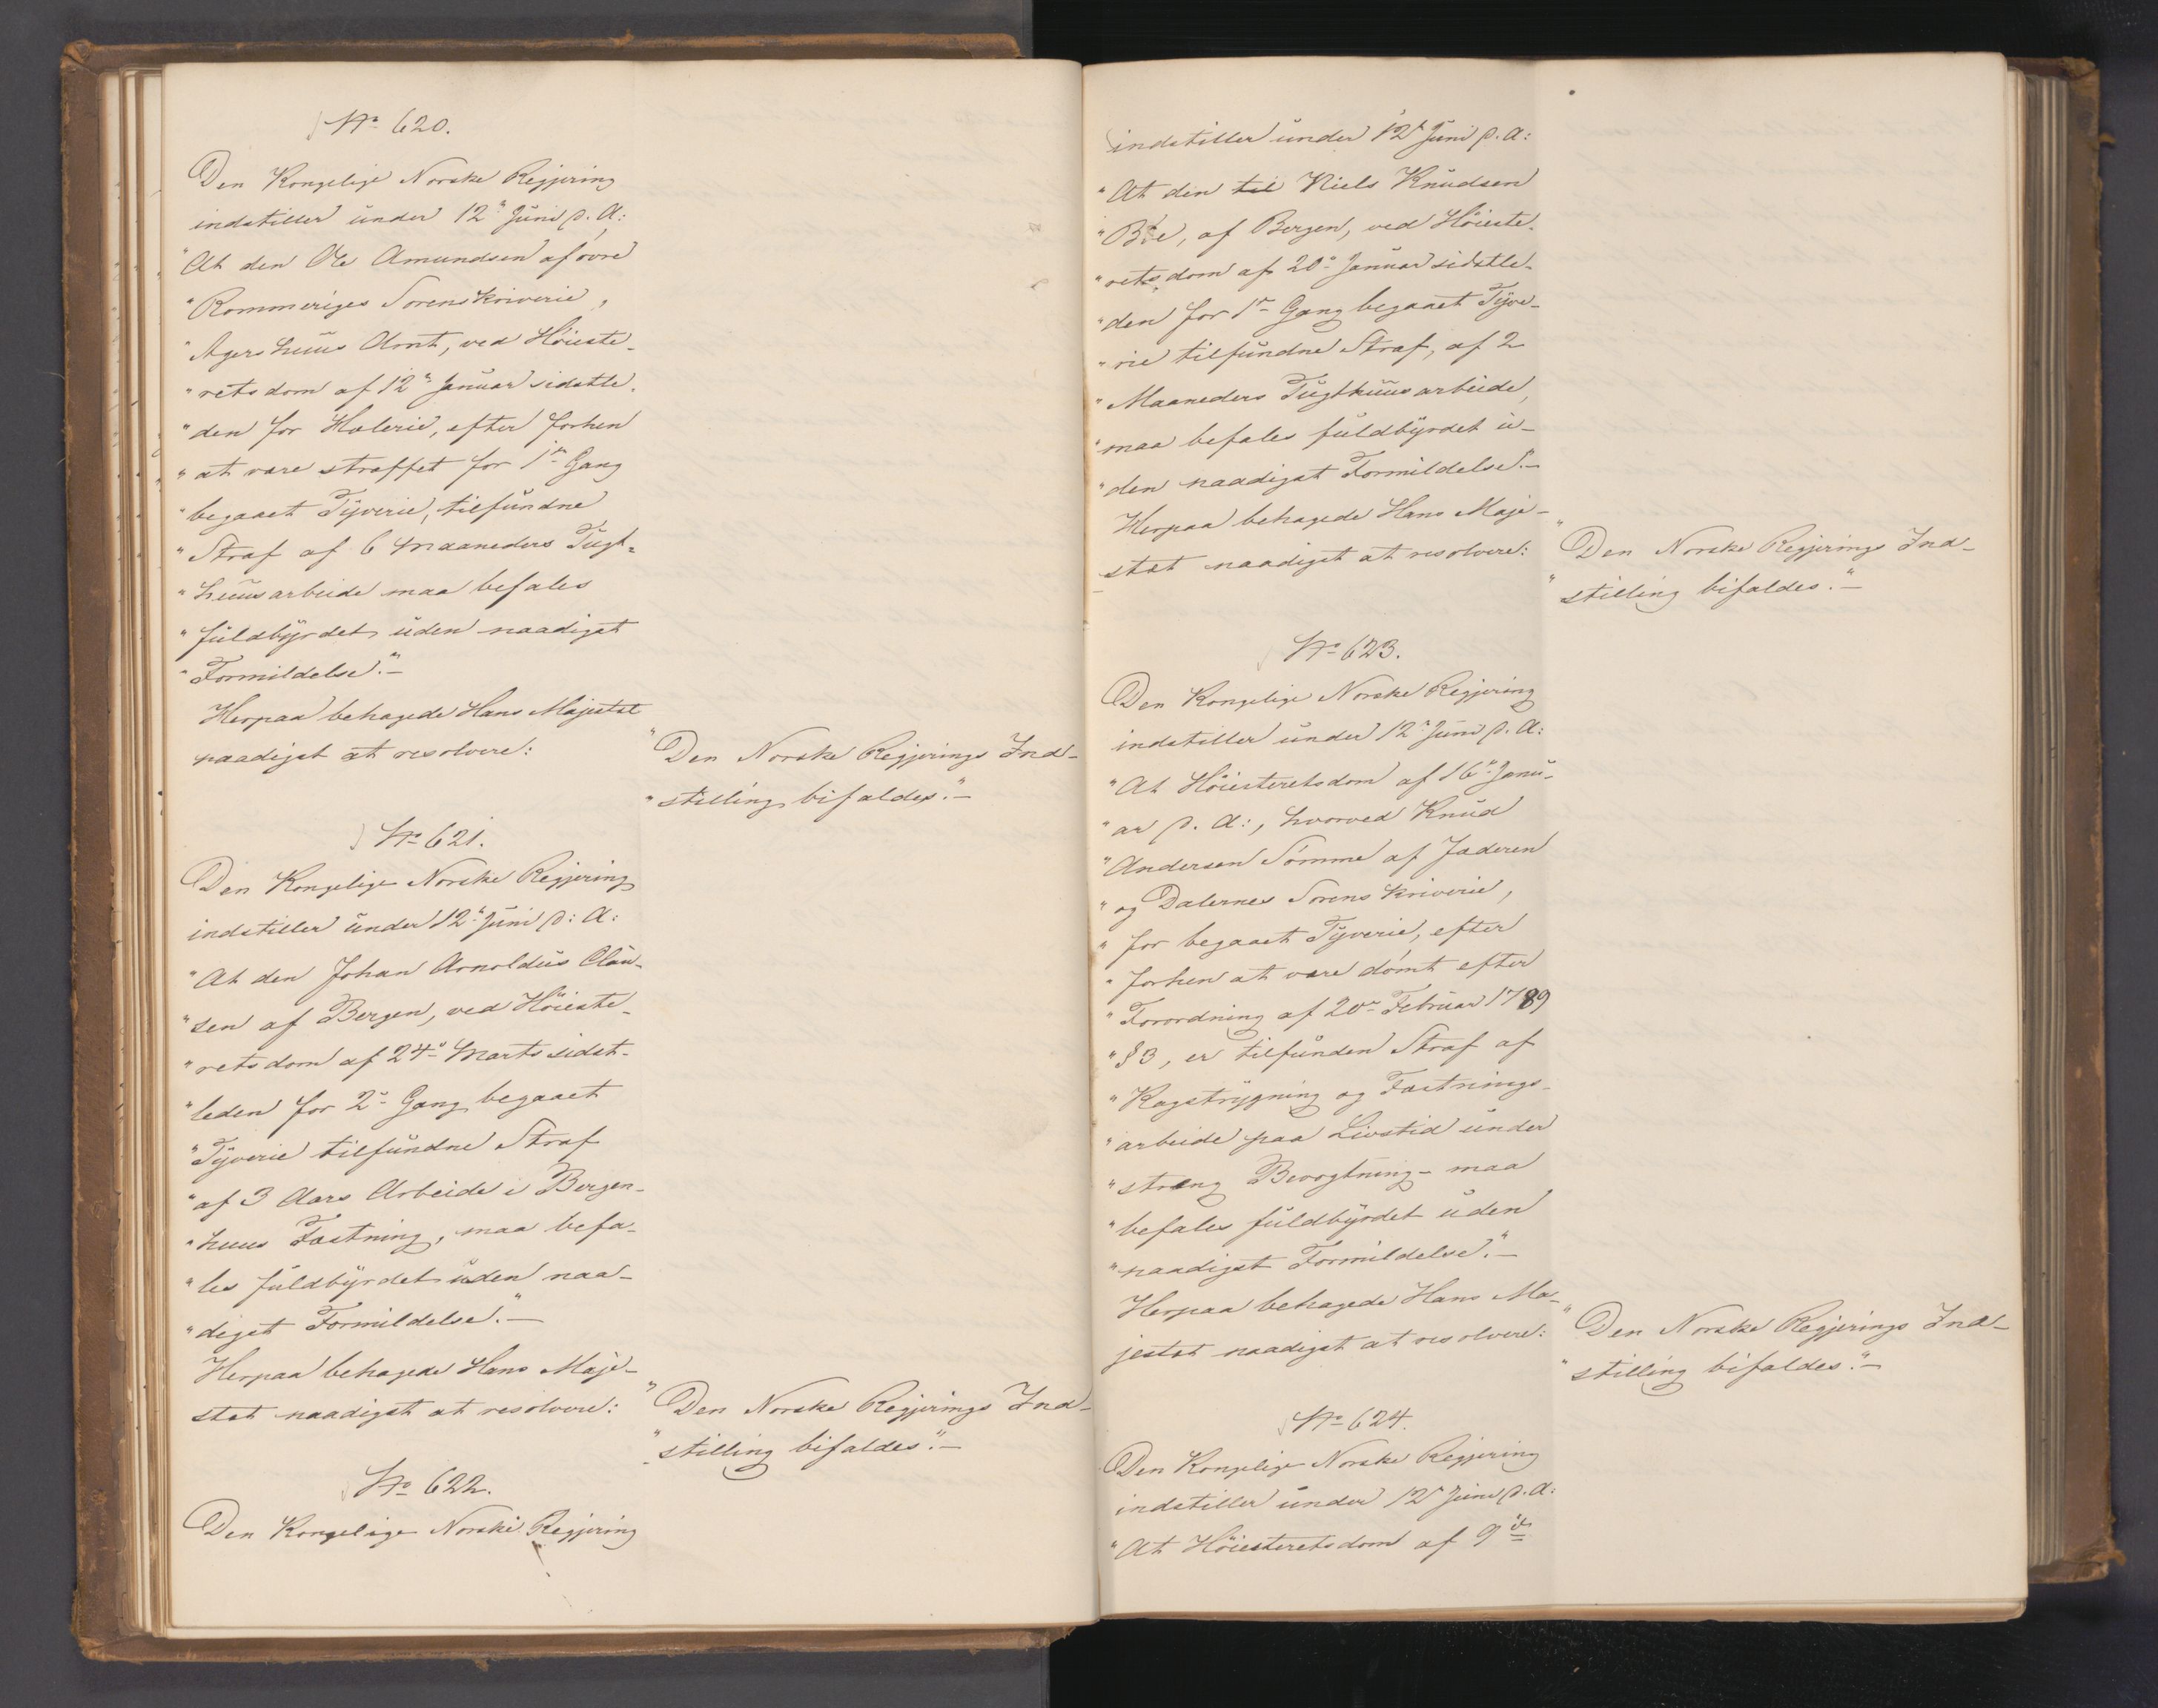 No 620.
Den Kongelige Norske Regjering
indstiller under 12te Juni d. A:
"At den Ole Amundsen af övre
"Rommeriges Sorenskriverie,
"Agershuus Amt, ved Höieste-
"retsdom af 12te Januar sidstle-
"den for Hæleri, efter forhen
"at være straffet for 1ste Gang
"begaaet Tyverie, tilfundne
"Straf af 6 Maaneders Tugt-
"huusarbeide maa befales
"fuldbyrdet uden naadigst
"Formildelse."-
Herpaa behagede Hans Majestæt
naadigst at resolvere:
"Den Norske Regjerings Ind-
"stilling bifaldes."-
No 621.
Den Kongelige Norske Regjering
indstiller under 12te Juni d: A:
"At den Johan Arnoldus Clau-
"sen af Bergen, ved Höieste-
"retsdom af 24de Marts sidst-
"leden for 2den Gang begaaet
"Tyverie tilfundne Straf
"af 3 Aars Arbeide i Bergen-
"huus Fæstning, maa befa-
"les fuldbyrdet uden naa-
"digst Formildelse."-
Herpaa behagede Hans Maje-
stæt naadigst at resolvere:
"Den Norske Regjerings Ind-
"stilling bifaldes."-
No 622.
Den Kongelige Norske Regjering
indstiller under 12te Juni d. A:
"At den til Niels Knudsen
"Böe, af Bergen, ved Höieste-
"retsdom af 20de Januar sidstle-
"den for 1ste Gang begaaet Tyve-
"rie tilfundne Straf, af 2
"Maaneders Tugthuusarbeide,
"maa befales fuldbyrdet u-
"den naadigst Formildelse."-
Herpaa behagede Hans Maje-
stæt naadigst at resolvere:
"Den Norske Regjerings Ind-
"stilling bifaldes."-
No 623.
Den Kongelige Norske Regjering
indstiller under 12te Juni d. A:
"At Höiesteretsdom af 16de Janu-
"ar d. A:, hvorved Knud
"Andersen Sömme af Jæderen
"og Dalernes Sorenskriverie,
"for begaaet Tyverie, efter
"forhen at være dömt efter
"Forordning af 20de Februar 1789
"§3, er tilfunden Straf af
"Kagstrygning og Fæstnings-
"arbeide paa Livstid under
"streng Bevogtning- maa
"befales fuldbyrdet uden
"naadigst Formildelse."-
Herpaa behagede Hans Ma-
jestæt naadigst at resolvere:
"Den Norske Regjerings Ind-
"stilling bifaldes."-
No 624.
Den Kongelige Norske Regjering
indstiller under 12te Juni d. A:
"At Höiesteretsdom af 9de